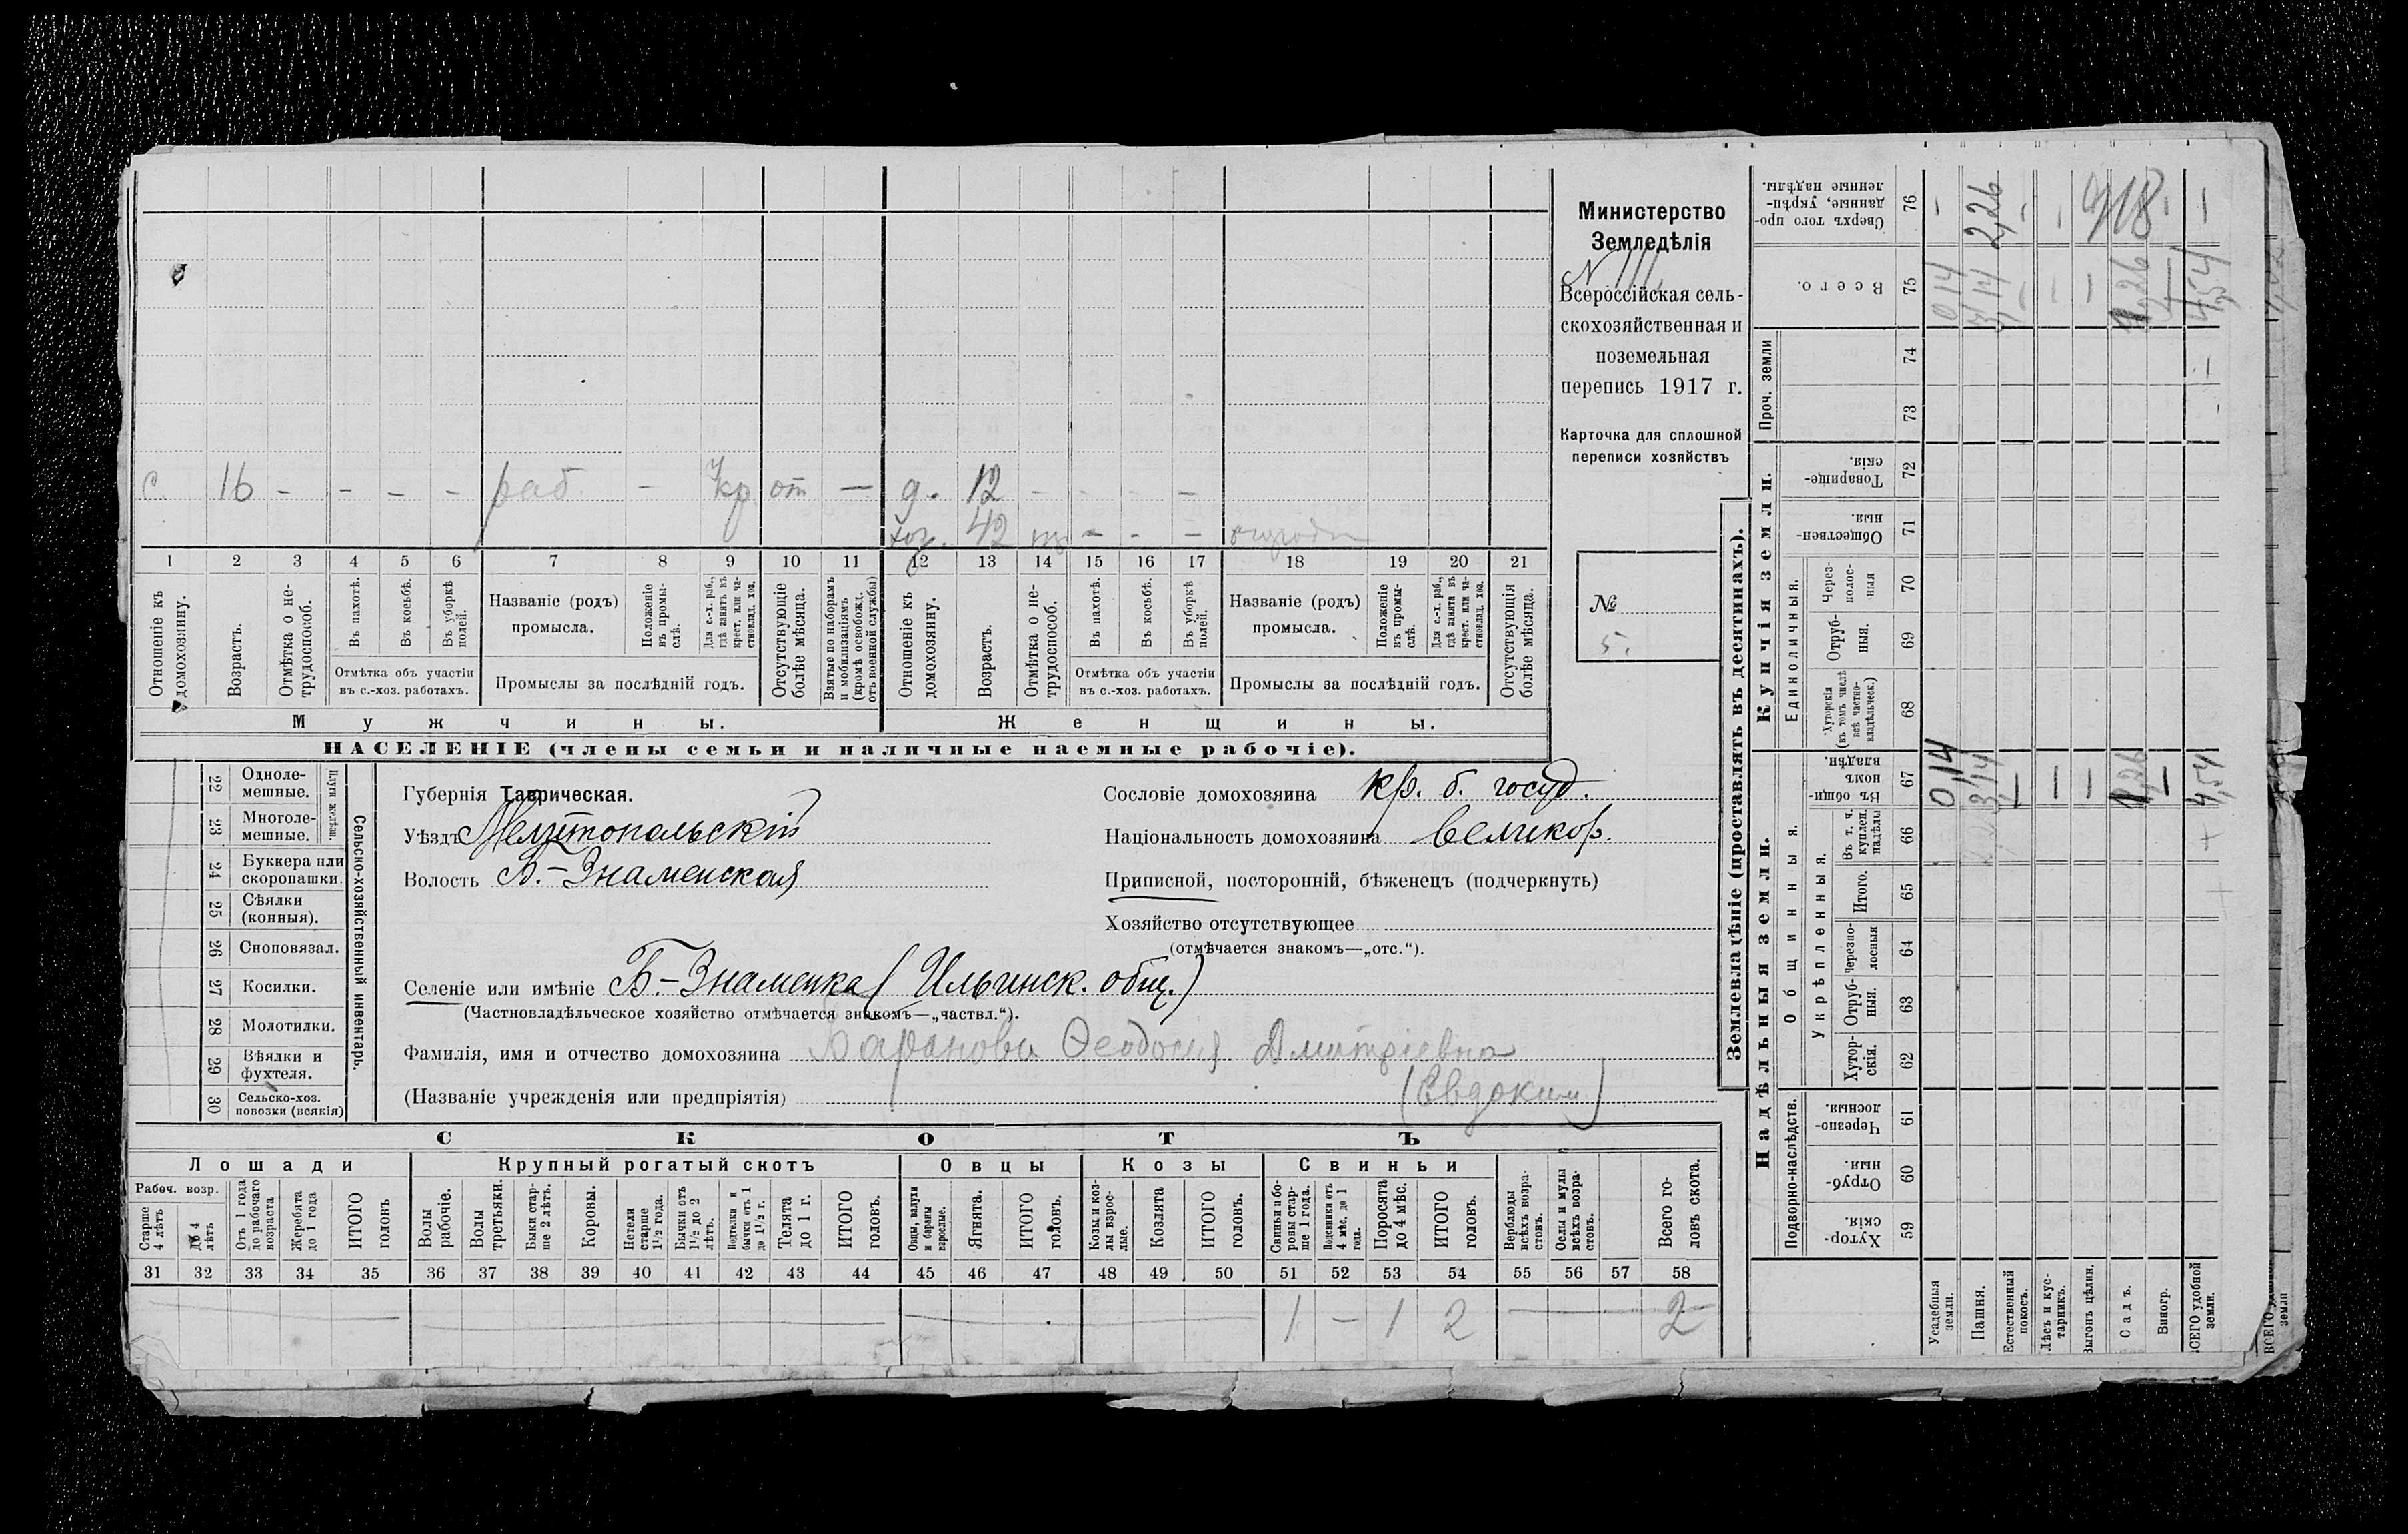 с. 16 - - - - раб. - кр от — д. 12 - - - -
хоз. 42 - - -
1 2 3 4 5 6 7 8 9 10 11 12 13 14 15 16 17 18 19 20 21
Отношеніе къ домохозяину.
Возрастъ.
Отмѣтка о не-
трудоспособ.
Въ пахотѣ.
Въ косьбѣ.
Въ уборкѣ полей.
Отмѣтка объ участіи
въ с.-хоз. работахъ.
Названіе (родъ)
промысла.
Положеніе въ промы-
слѣ.
Для с.-х. раб.,
гдѣ занятъ въ
крест. или ча-
стновлад. хоз.
Промыслы за послѣдній годъ.
Отсутствующіе
болѣе мѣсяца.
Взятые по наборамъ
и мобилизаціямъ
(кромѣ освобожд.
отъ военной службы)
Отношеніе къ
домохозяину.
Возрастъ.
Отмѣтка о не-
трудоспособ.
Въ пахотѣ.
Въ косьбѣ.
Въ уборкѣ полей.
Отмѣтка объ участіи
въ с.-хоз. работахъ.
Названіе (родъ)
промысла.
Положеніе въ промы-
слѣ.
Для с.-х. раб.,
гдѣ занята въ
крест. или ча-
стновлад. хоз.
Промыслы за послѣдній годъ.
Отсутствующія
болѣе мѣсяца.
Мужчины. Женщины.
НАСЕЛЕНІЕ (члены семьи и наличные наемные рабочіе).
Министерство
Земледѣлія
N III
Всероссійская сель-
скохозяйственная и
поземельная
перепись 1917 г.
Карточка для сплошной
переписи хозяйствъ
№
5.
22 Одноле-
мешные.
23 Многоле-
мешные.
Плуги желѣзн.
24 Буккера или
скоропашки.
25 Сѣялки
(конныя).
26 Сноповязал.
27 Косилки.
28 Молотилки.
29 Вѣялки и
фухтеля.
30 Сельско-хоз.
повозки (всякія)
Сельско-хозяйственный инвентарь.
Губернія Таврическая.
Уѣздъ Мелитопольскій
Волость Б.-Знаменская
Сословіе домохозяина кр. б. госуд.
Національность домохозяина великор.
Приписной, посторонній, бѣженецъ (подчеркнуть)
Хозяйство отсутствующее
(отмѣчается знакомъ—„отс.“).
Селеніе или имѣніе Б.-Знаменка (Ильинск. общ.)
(Частновладѣльческое хозяйство отмѣчается знакомъ—„частвл.“).
Фамилія, имя и отчество домохозяина Баранова Ѳеодосія Дмитріевна
(Названіе учрежденія или предпріятія) (Евдоким.)
СКОТЪ
Лошади Крупный рогатый скотъ Овцы Козы Свиньи
Рабоч. возр.
Старше
4 лѣтъ
До 4
лѣтъ
Отъ 1 года
до рабочаго
возраста
Жеребята
до 1 года
ИТОГО
головъ
Волы
рабочіе.
Волы
третьяки.
Быки стар-
ше 2 лѣтъ.
Коровы.
Нетели
старше
1½ года.
Бычки отъ
1½ до 2
лѣтъ.
Подтелки и
бычки отъ 1
до 1½ г.
Телята
до 1 г.
ИТОГО
головъ.
Овцы, валухи
и бараны
взрослые.
Ягнята.
ИТОГО
головъ.
Козы и коз-
лы взрос-
лые.
Козлята
ИТОГО
головъ.
Свиньи и бо-
ровы стар-
ше 1 года.
Подсвинки отъ
4 мѣс. до 1
года.
Поросята
до 4 мѣс.
ИТОГО
головъ.
Верблюды
всѣхъ возра-
стовъ.
Ослы и мулы
всѣхъ возра-
стовъ.
Всего го-
ловъ скота.
31 32 33 34 35 36 37 38 39 40 41 42 43 44 45 46 47 48 49 50 51 52 53 54 55 56 57 58
1 - 1 2 — 2
Землевладѣніе (проставлять въ десятинахъ).
Надѣльныя земли. Купчія земли. Проч. земли
Подворно-наслѣдств. Общинныя. Единоличныя.
Укрѣпленныя.
Хутор-
скія. 59
Отруб-
ныя. 60
Черезпо-
лосныя. 61
Хутор-
скія. 62
Отруб-
ныя. 63
Черезпо-
лосныя 64
Итого. 65
Въ т. ч.
куплен.
надѣлы 66
Въ общи-
номъ
владѣн. 67
Хуторскія
(въ томъ числѣ
всѣ частно-
владѣльческ.) 68
Отруб-
ныя. 69
Через-
полос-
ныя 70
Обществен-
ныя. 71
Товарище-
скія. 72
73
74
Всего. 75
Сверхъ того про-
данные, укрѣп-
ленные надѣлы. 76
Усадебныя
земли. 0,14 0,14 -
Пашня. 3,14 3,14 2,26
Естественный
покосъ. - - -
Лѣсъ и кус-
тарникъ. - - -
Выгонъ цѣлин. - -
Садъ. 1,26 1,26
Виногр. - -
ВСЕГО удобной
земли. 4,54 4,54 -